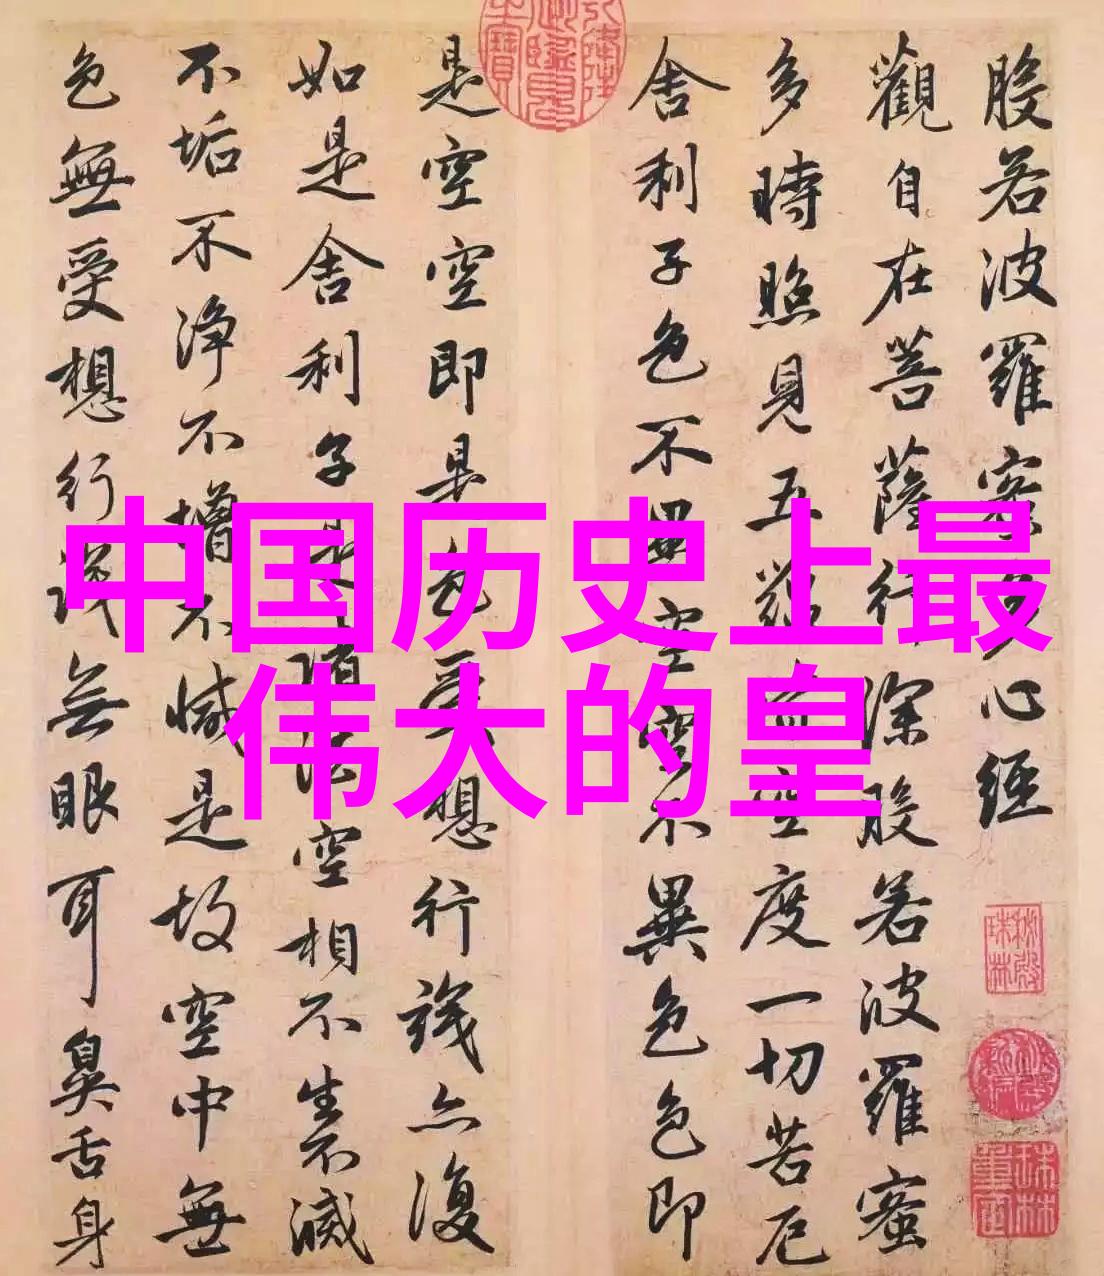 般若波羅蜜多心經
觀自在菩薩行深般若波羅蜜
多時照見五蘊皆空度一切苦厄
舍利子色不異空空不異色色即
是空空即是色受想行識亦復
如是舍利子是諸法空相不生不滅
不垢不淨不增不減是故空中無
色無受想行識無眼耳鼻舌身
中国历史上最
伟大的皇